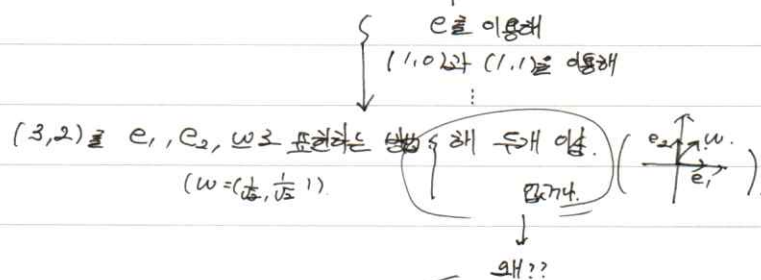 e를 이용해
(1,0)과 (1,1)을 이용해
⋮
(3,2)를 e₁, e₂, w로 표현하는 방법 { 해 두개 이상. ( e₂ w. e₁ ).
(w=(1/√2, 1/√2)) 없거나.
왜??